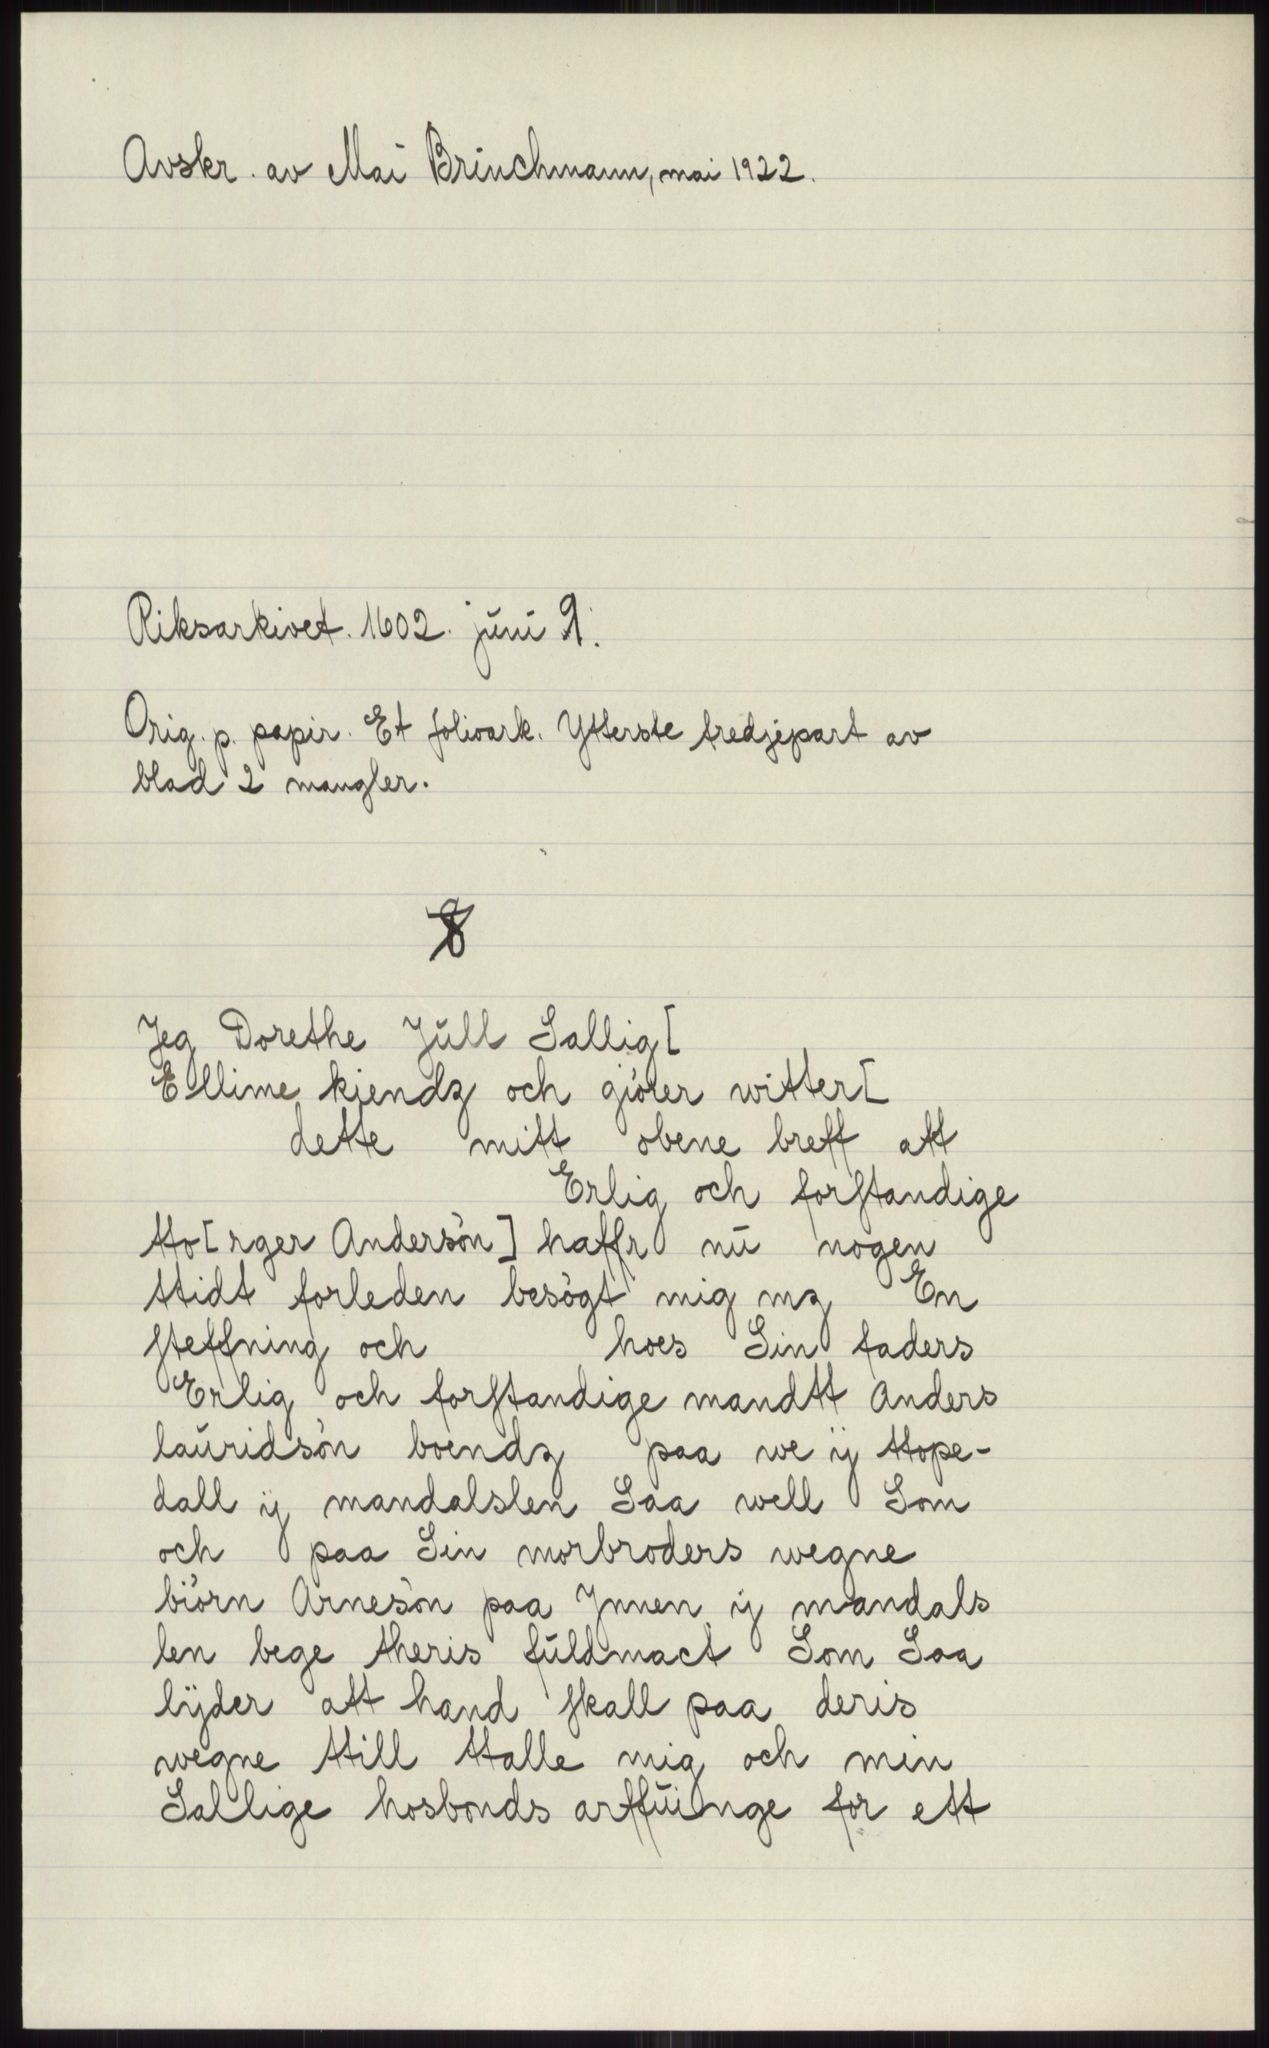 Avskr. av Mai Brinchmann, mai 1922.
Riksarkivet. 1602. juni 9.
Orig. p. papir. Et folioark. Ytterste tredjepart av
blad 2 mangler.
Jeg Dorethe Jull Sallig[
Ellime kiendz och giörer witter[
dette mitt obene breff att
Erlig och forstandige
tto[rger Andersön] haffr nu nogen
ttidt forleden besögt mig mz En
steffning och hoes Sin faders
Erlig och forstandige mandtt Anders
lauridsön boendz paa we ij ttope-
dall ij mandalslen Saa well Som
och paa Sin morbroders wegne
biörn Arnesön paa Jnnen ij mandals
len bege theris fuldmact Som Saa
lyder att hand skall paa deris
wegne ttill ttalle mig och min
Sallige hosbonds arffuinge for ett